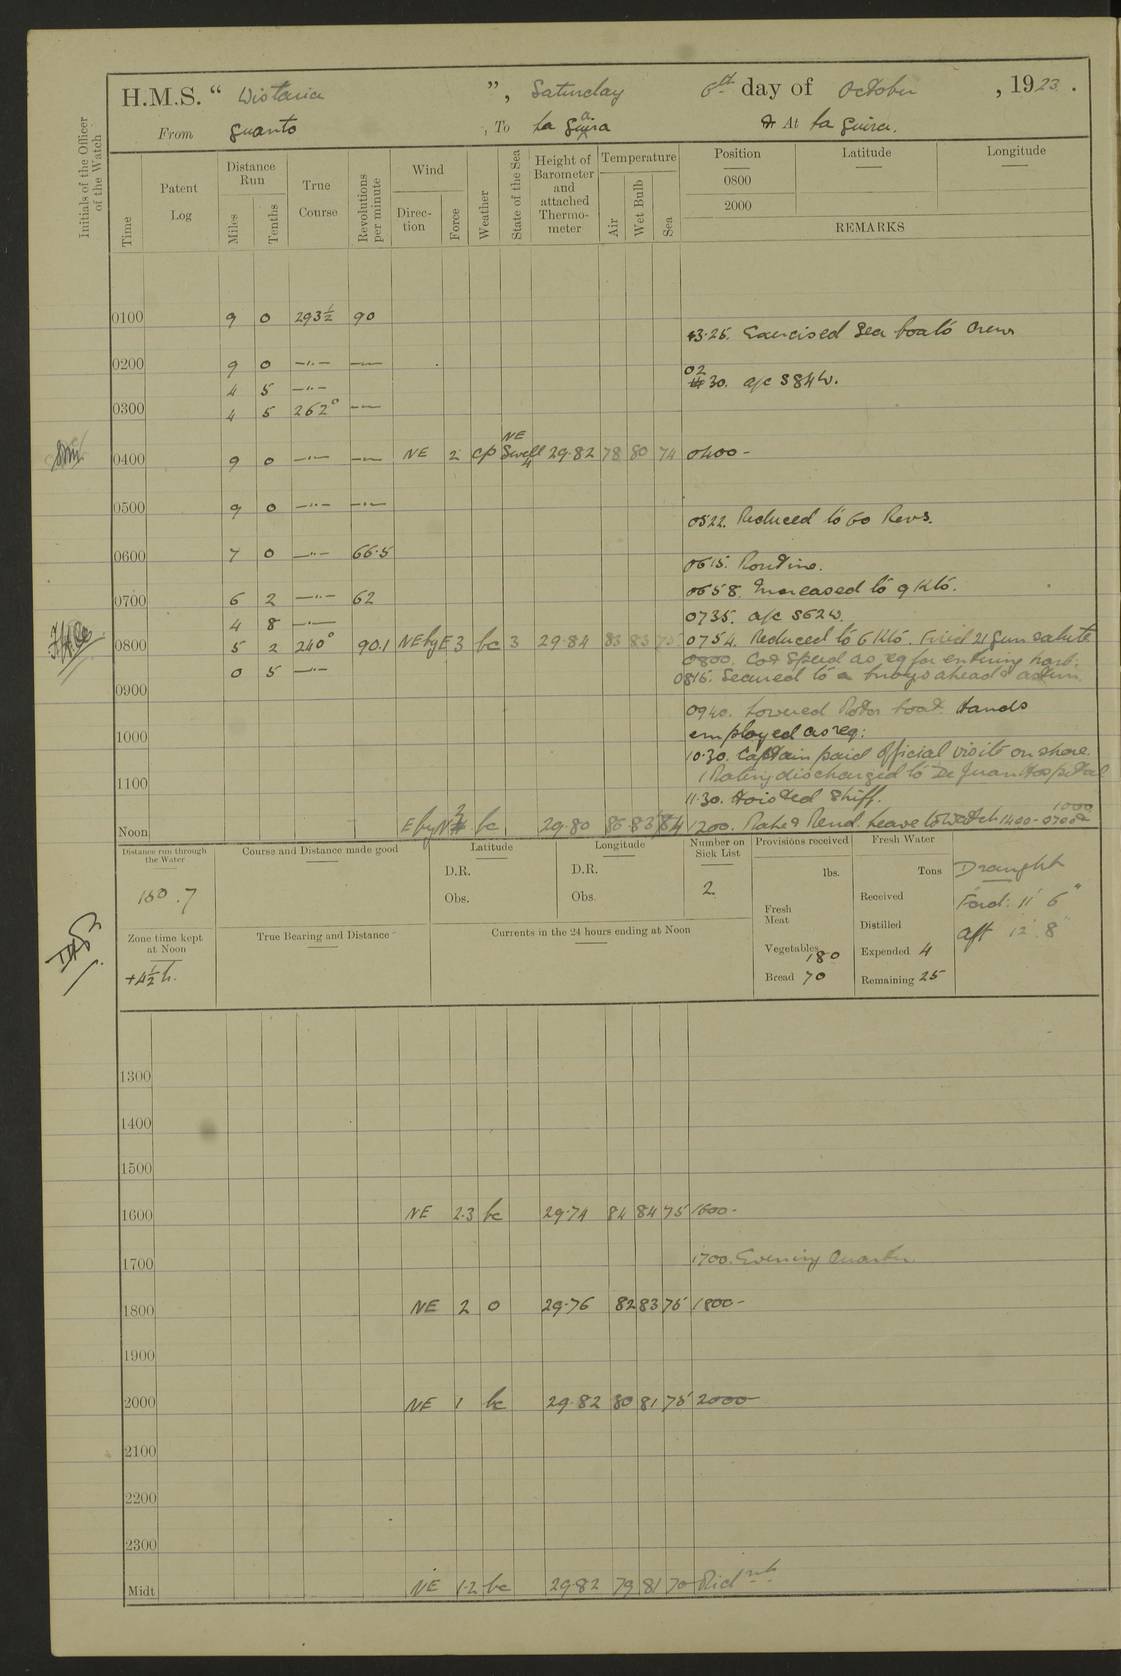 H.M.S. “ Wistaria ”, Saturday 6th day of October, 1923.
From Guanto, To La Guira & At La Guira.
Initials of the Officer of the Watch
Time
Patent Log
Distance Run
Miles
Tenths
True Course
Revolutions per minute
Wind
Direction
Force
Weather
State of the Sea
Height of Barometer and attached Thermometer
Temperature
Air
Wet Bulb
Sea
Position Latitude Longitude
0800
2000
REMARKS
0100 9 0 293½ 90
+3.25. Exercised Sea boats Crew
0200 9 0 —"— —
4 5 —"—
0230. a/c S84W.
0300 4 5 262° —
0400 9 0 —"— — NE 2 cp NE Swell 4 29.82 78 80 74 0400 -
0500 9 0 —"— —"—
0522. Reduced to 60 Revs.
0600 7 0 —"— 66.5
0615. Routine.
0658. Increased to 9 Kts.
0700 6 2 —"— 62
0735. a/c S62W.
4 8 —"—
0800 5 2 240° 90.1 NEbyE 3 bc 3 29.84 83 83 75 0754. Reduced to 6 Kts. Fired 21 Gun salute
0 5 —"—
0800. Co & Speed as req for entering harb.
0815. Secured to a buoys ahead & astern
0900
0940. Lowered Motor boat. Hands
employed as req:
1000
10.30. Captain paid official visits on shore.
1 Rating discharged to De Juan Hospital
1100
11.30. Hoisted Skiff.
Noon EbyN 3 bc 29.80 86 83 84 1200. Make & Mend. Leave to Watch 1400-0700
1000
Distance run through the Water
160.7
Course and Distance made good
Latitude
D.R.
Obs.
Longitude
D.R.
Obs.
Number on Sick List
2.
Provisions received
lbs.
Fresh Meat
Vegetables 180
Bread 70
Fresh Water
Tons
Received
Distilled
Expended 4
Remaining 25
Draught
Ford: 11' 6"
aft 12' 8"
Zone time kept at Noon
+4½ h.
True Bearing and Distance
Currents in the 24 hours ending at Noon
1300
1400
1500
1600 NE 2.3 bc 29.74 84 84 75 1600 -
1700 1700. Evening Quarters
1800 NE 2 0 29.76 82 83 75 1800 -
1900
2000 NE 1 bc 29.82 80 81 75 2000
2100
2200
2300
Midt NE 1.2 bc 29.82 79 81 70